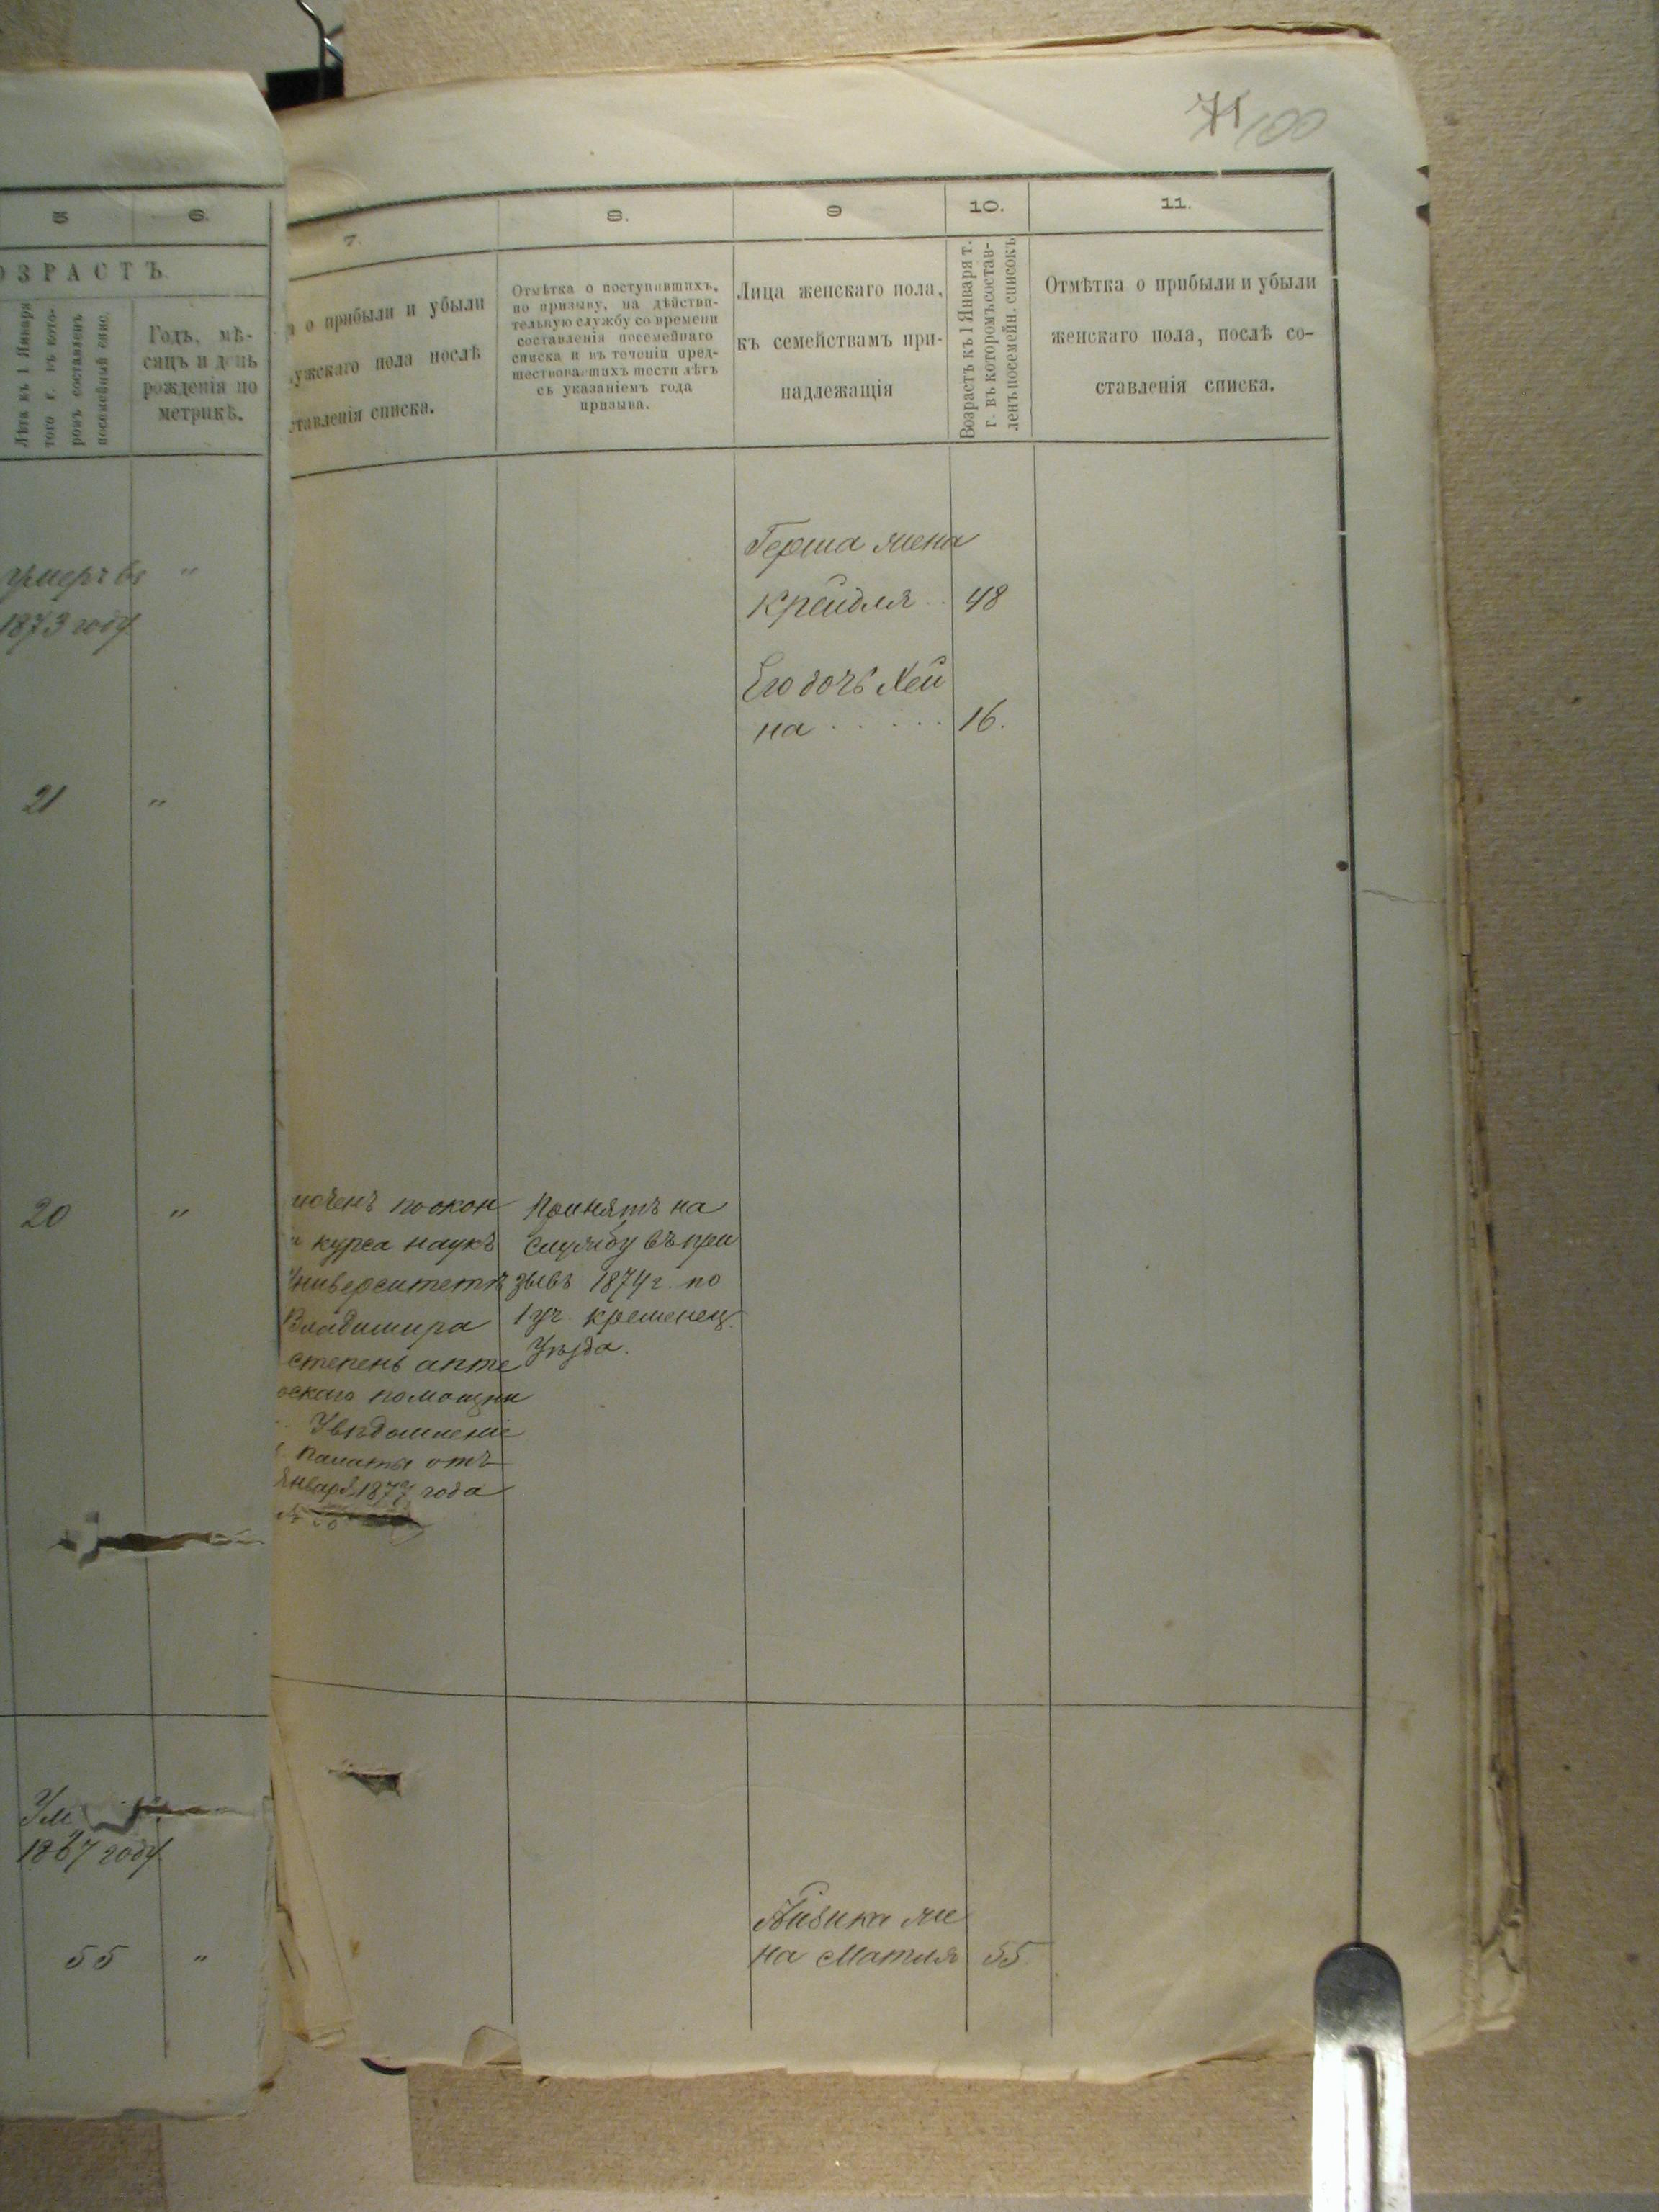 71 100
5
6.
7.
8.
9
10.
11.
ОЗРАСТЪ
Лѣта къ 1 Января
того г. въ кото-
ромъ составленъ
посемейный спис.
Годъ, мѣ-
сяцъ и день
рожденія по
метрикѣ.
а о прибыли и убыли
ужскаго пола послѣ
ставленія списка.
Отмѣтка о поступившихъ,
по призыву, на дѣйстви-
тельную службу со времени
составленія посемейнаго
списка и въ теченіи пред-
шествовавшихъ шести лѣтъ
съ указаніемъ года
призыва.
Лица женскаго пола,
къ семействамъ при-
надлежащія
Возрастъ къ 1 Января т.
г. въ которомъ состав-
ленъ посемейн. списокъ
Отмѣтка о прибыли и убыли
женскаго пола, послѣ со-
ставленія списка.
умеръ въ "
1873 году
Герша жена
Крейдля .. 48
Его дочь Хей
на . . . . . . 16.
21 "
20 "
ючень по окон
и курса наукъ
Университетѣ
Владимира
степень апте
рскаго помощни
Увѣдомленіе
Палаты отъ
Января 1877 года
Принятъ на
службу въ при
зывъ 1874 г. по
1 уч. Кременец.
Уѣзда.
Ум
1867 году
55 "
Лейвика же
на Матля 55.